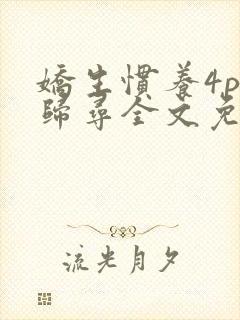 嬌生慣養4p
歸尋全文免
流光月夕